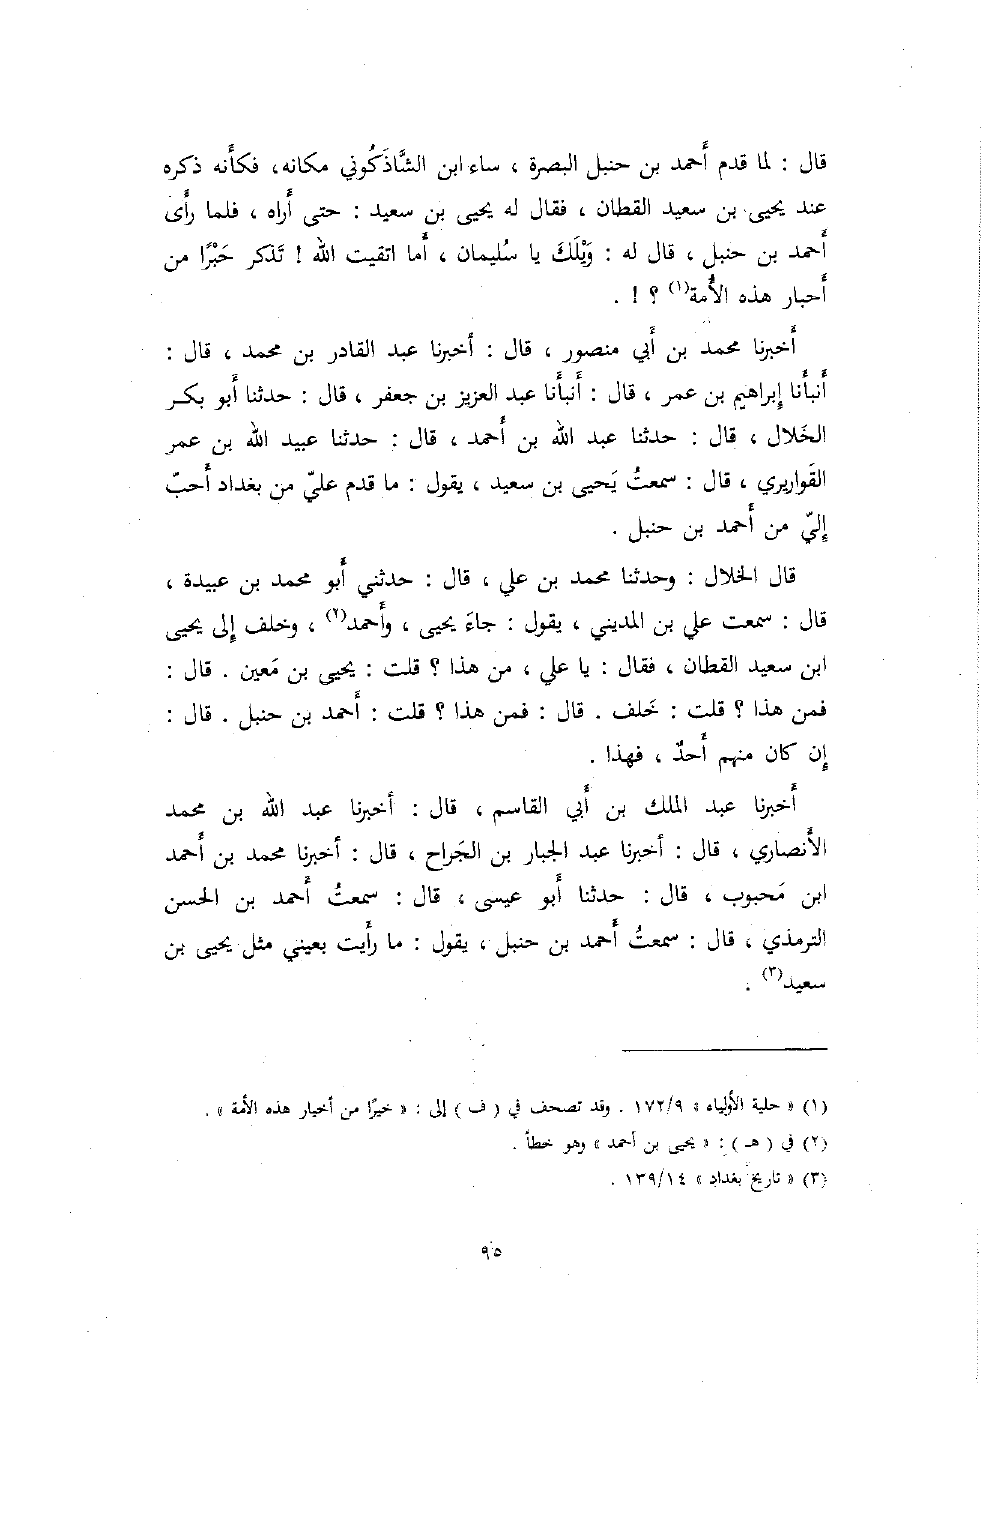 قال : لما قدم أحمد بن حنبل البصرة ، ساء ابن الشَّاذَكُوني مكانه، فكأنه ذكره
عند يحيى بن سعيد القطان ، فقال له يحيى بن سعيد : حتى أراه ، فلما رأى
أحمد بن حنبل ، قال له : وَيْلَكَ يا سُليمان ، أما اتقيت الله ! تَذكر حَبْرًا من
أحبار هذه الأمة(١) ؟ ! .
أخبرنا محمد بن أبي منصور ، قال : أخبرنا عبد القادر بن محمد ، قال :
أنبأنا إبراهيم بن عمر ، قال : أنبأنا عبد العزيز بن جعفر ، قال : حدثنا أبو بكر
الخَلال ، قال : حدثنا عبد الله بن أحمد ، قال : حدثنا عبيد الله بن عمر
القَواريري ، قال : سمعتُ يَحيى بن سعيد ، يقول : ما قدم عليّ من بغداد أحبّ
إليّ من أحمد بن حنبل .
قال الخلال : وحدثنا محمد بن علي ، قال : حدثني أبو محمد بن عبيدة ،
قال : سمعت علي بن المديني ، يقول : جاءَ يحيى ، وأحمد(٢) ، وخلف إلى يحيى
ابن سعيد القطان ، فقال : يا علي ، من هذا ؟ قلت : يحيى بن مَعين . قال :
فمن هذا ؟ قلت : خَلف . قال : فمن هذا ؟ قلت : أحمد بن حنبل . قال :
إن كان منهم أحدٌ ، فهذا .
أخبرنا عبد الملك بن أبي القاسم ، قال : أخبرنا عبد الله بن محمد
الأنصاري ، قال : أخبرنا عبد الجبار بن الجَراح ، قال : أخبرنا محمد بن أحمد
ابن مَحبوب ، قال : حدثنا أبو عيسى ، قال : سمعتُ أحمد بن الحسن
الترمذي ، قال : سمعتُ أحمد بن حنبل ، يقول : ما رأيت بعيني مثل يحيى بن
سعيد(٣) .
(١) « حلية الأولياء » ١٧٢/٩ . وقد تصحف في ( ف ) إلى : « خيرًا من أخيار هذه الأمة » .
(٢) في ( هـ ) : « يحيى بن أحمد » وهو خطأ .
(٣) « تاريخ بغداد » ١٣٩/١٤ .
٩٥